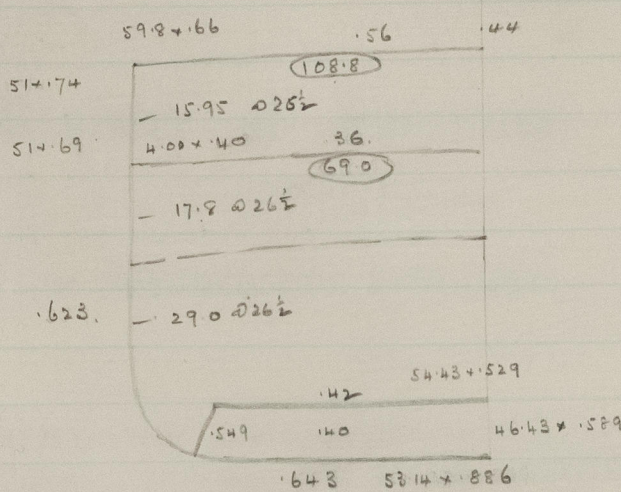 59.8 × .66 .56 .44
108.8
51 × .74
15.95 @ 26½
51 × .69 4.00 × .40 36.
69.0
17.8 @ 26½
.623. 29.0 @ 26½
54.43 × .529
.42
.549 .40 46.43 × .589
.643 53.14 × .886